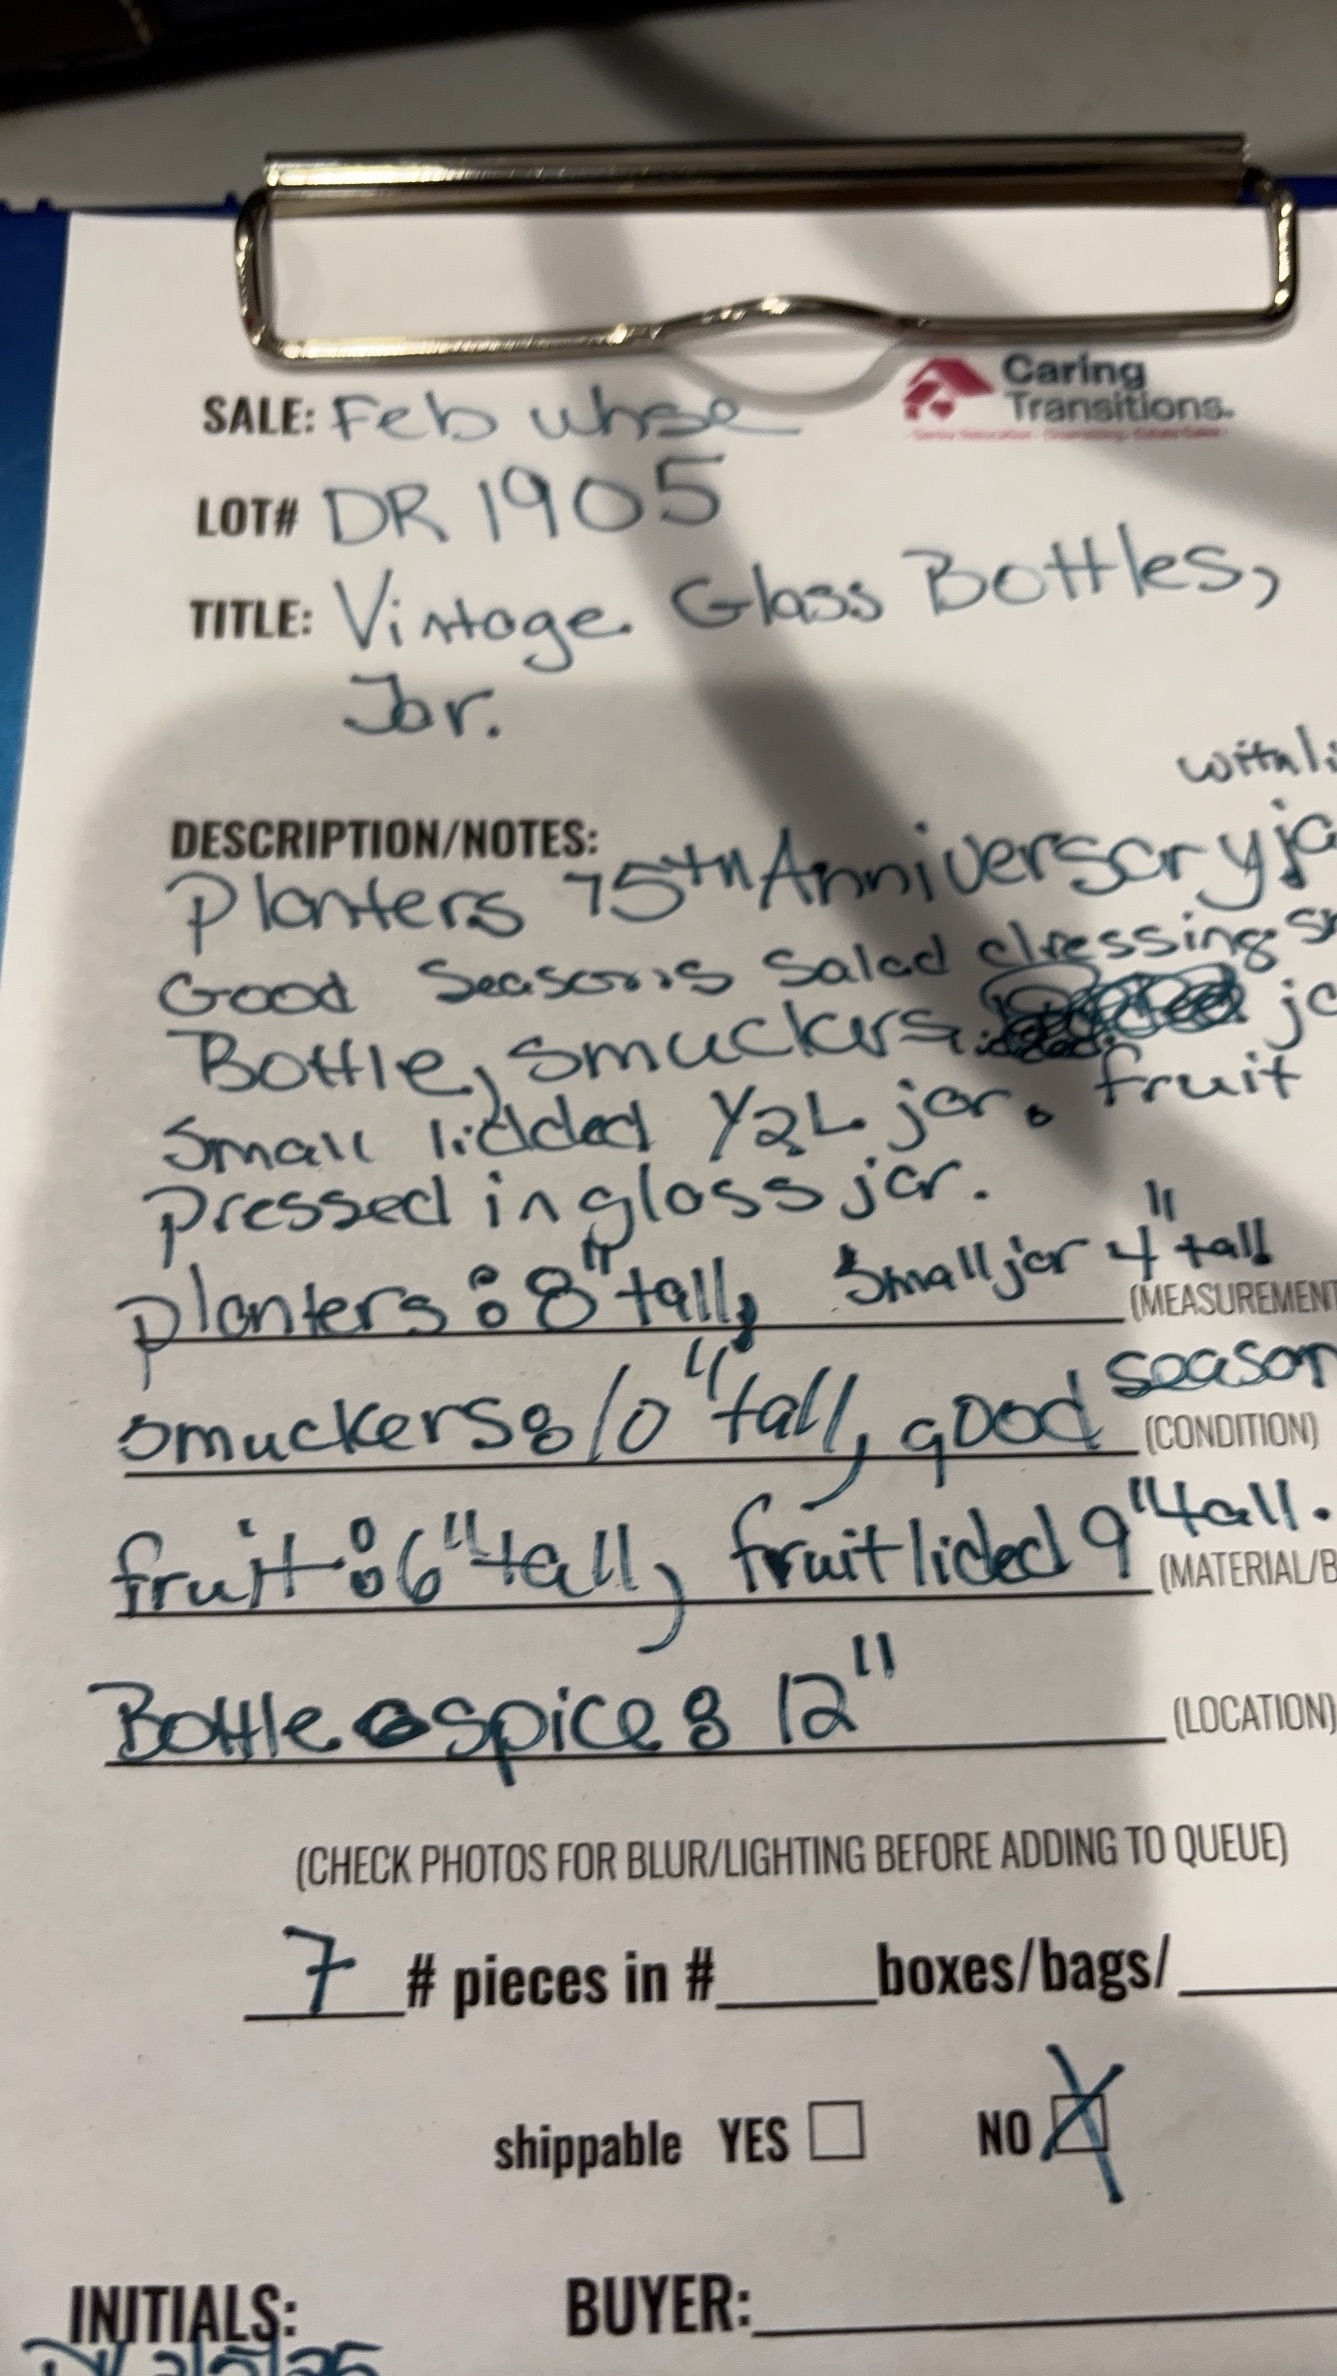 Caring
Transitions.
SALE: Feb whse
LOT# DR 1905
TITLE: Vintage Glass Bottles,
Jar.
with
DESCRIPTION/NOTES:
Planters 75th Anniversary
Good Seasons Salad dressing
Bottle, Smuckers
Small lidded Y2L jar. fruit
pressed in glass jar.
planters: 8" tall, Small jar 4" tall
(MEASUREMENT
smuckers: 10" tall, good season
(CONDITION)
fruit: 6" tall, fruit lided 9" tall.
(MATERIAL/B
Bottle spice: 12"
(LOCATION)
(CHECK PHOTOS FOR BLUR/LIGHTING BEFORE ADDING TO QUEUE)
7 # pieces in #_____boxes/bags/_____
shippable YES NO X
INITIALS:
BUYER: